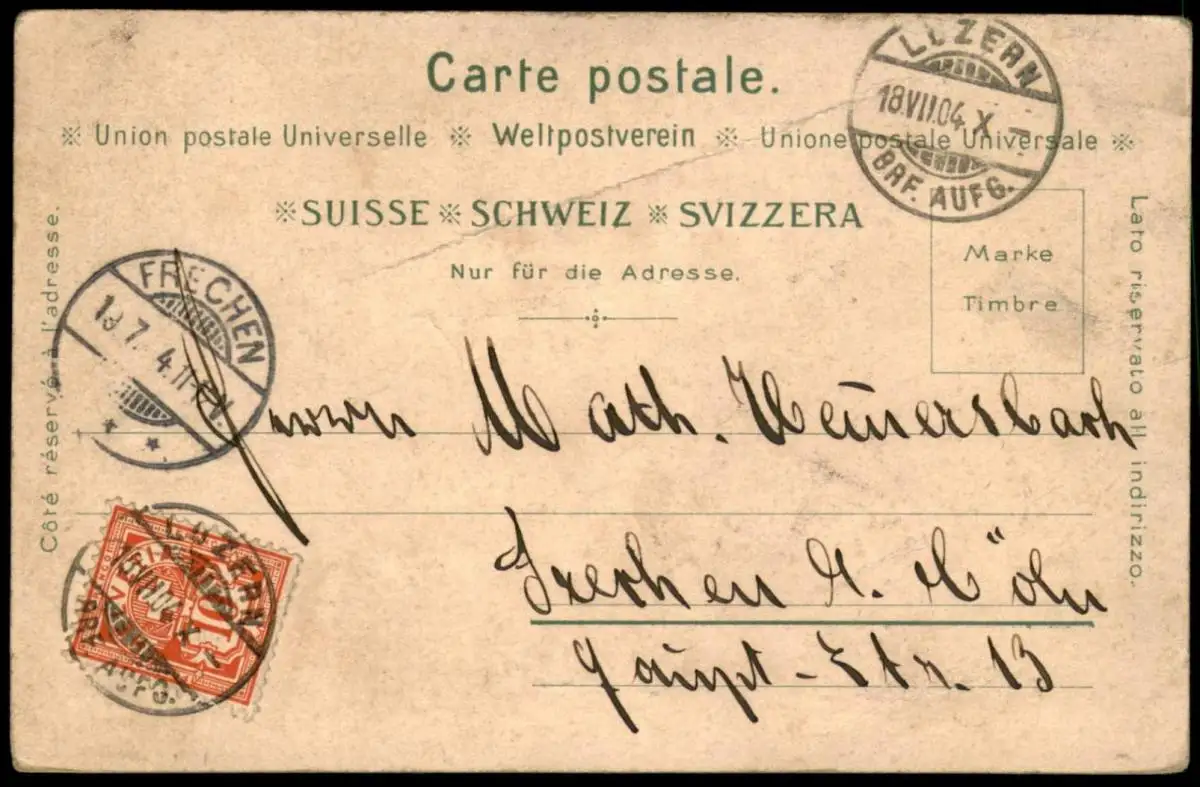 Carte postale.
※ Union postale Universelle ※ Weltpostverein ※ Unione postale Universale ※
※ SUISSE ※ SCHWEIZ ※ SVIZZERA
Nur für die Adresse.
LUZERN
18.VII.04. X
BRF. AUFG.
Marke
Timbre
Côté réservé à l'adresse.
Lato riservato all indirizzo.
FRECHEN
7. 4.
* *
Herrn Math. Heinersbach
Frechen b. Cöln
Haupt-Str. 13
LUZERN
VII.04. X
BRF. AUFG.
10